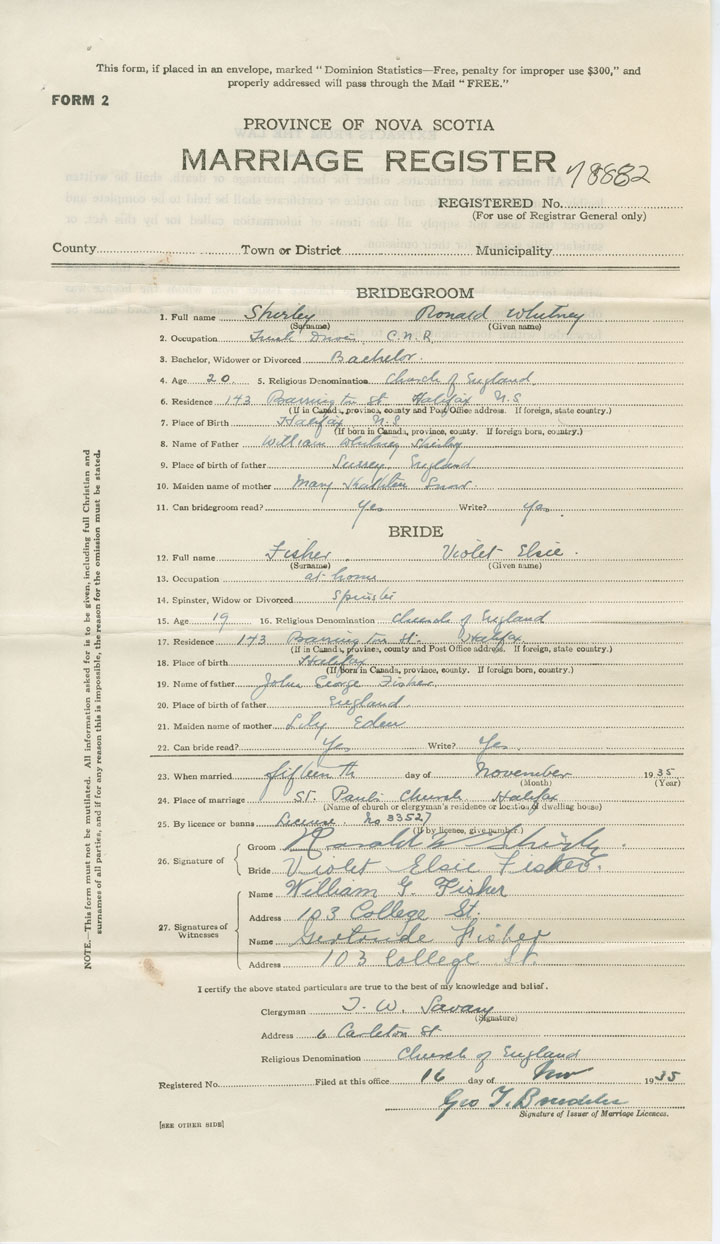 This form, if placed in an envelope, marked "Dominion Statistics—Free, penalty for improper use $300," and
properly addressed will pass through the Mail "FREE."
FORM 2
PROVINCE OF NOVA SCOTIA
MARRIAGE REGISTER
78882
REGISTERED No.
(For use of Registrar General only)
County Town or District Municipality
BRIDEGROOM
1. Full name Shirley Ronald Whitney
(Surname) (Given name)
2. Occupation Truck Driver C.N.R.
3. Bachelor, Widower or Divorced Bachelor.
4. Age 20. 5. Religious Denomination Church of England.
6. Residence 143 Barrington St Halifax N.S
(If in Canada, province, county and Post Office address. If foreign, state country.)
7. Place of Birth Halifax N.S
(If born in Canada, province, county. If foreign born, country.)
8. Name of Father William Whitney Shirley
9. Place of birth of father Surrey England
10. Maiden name of mother Mary Kathleen Snow.
11. Can bridegroom read? Yes Write? Yes.
BRIDE
12. Full name Fisher Violet Elsie.
(Surname) (Given name)
13. Occupation at home
14. Spinster, Widow or Divorced Spinster
15. Age 19 16. Religious Denomination Church of England
17. Residence 143 Barrington St. Halifax
(If in Canada, province, county and Post Office address. If foreign, state country.)
18. Place of birth Halifax
(If born in Canada, province, county. If foreign born, country.)
19. Name of father John George Fisher
20. Place of birth of father England.
21. Maiden name of mother Lily Eden
22. Can bride read? Yes Write? Yes.
23. When married fifteenth day of November 1935
(Month) (Year)
24. Place of marriage St. Paul's Church Halifax
(Name of church or clergyman's residence or location of dwelling house)
25. By licence or banns License No 33527
(If by licence, give number.)
26. Signature of
Groom Ronald W Shirley.
Bride Violet Elsie Fisher.
27. Signatures of Witnesses
Name William G. Fisher
Address 103 College St.
Name Gertrude Fisher
Address 103 College St.
I certify the above stated particulars are true to the best of my knowledge and belief.
Clergyman T. W. Savary
(Signature)
Address 6 Carleton St
Religious Denomination Church of England
Registered No. Filed at this office 16 day of Nov 1935
Geo T.
Signature of Issuer of Marriage Licences.
[SEE OTHER SIDE]
NOTE.—This form must not be mutilated. All information asked for is to be given, including full Christian and
surnames of all parties, and if for any reason this is impossible, the reason for the omission must be stated.